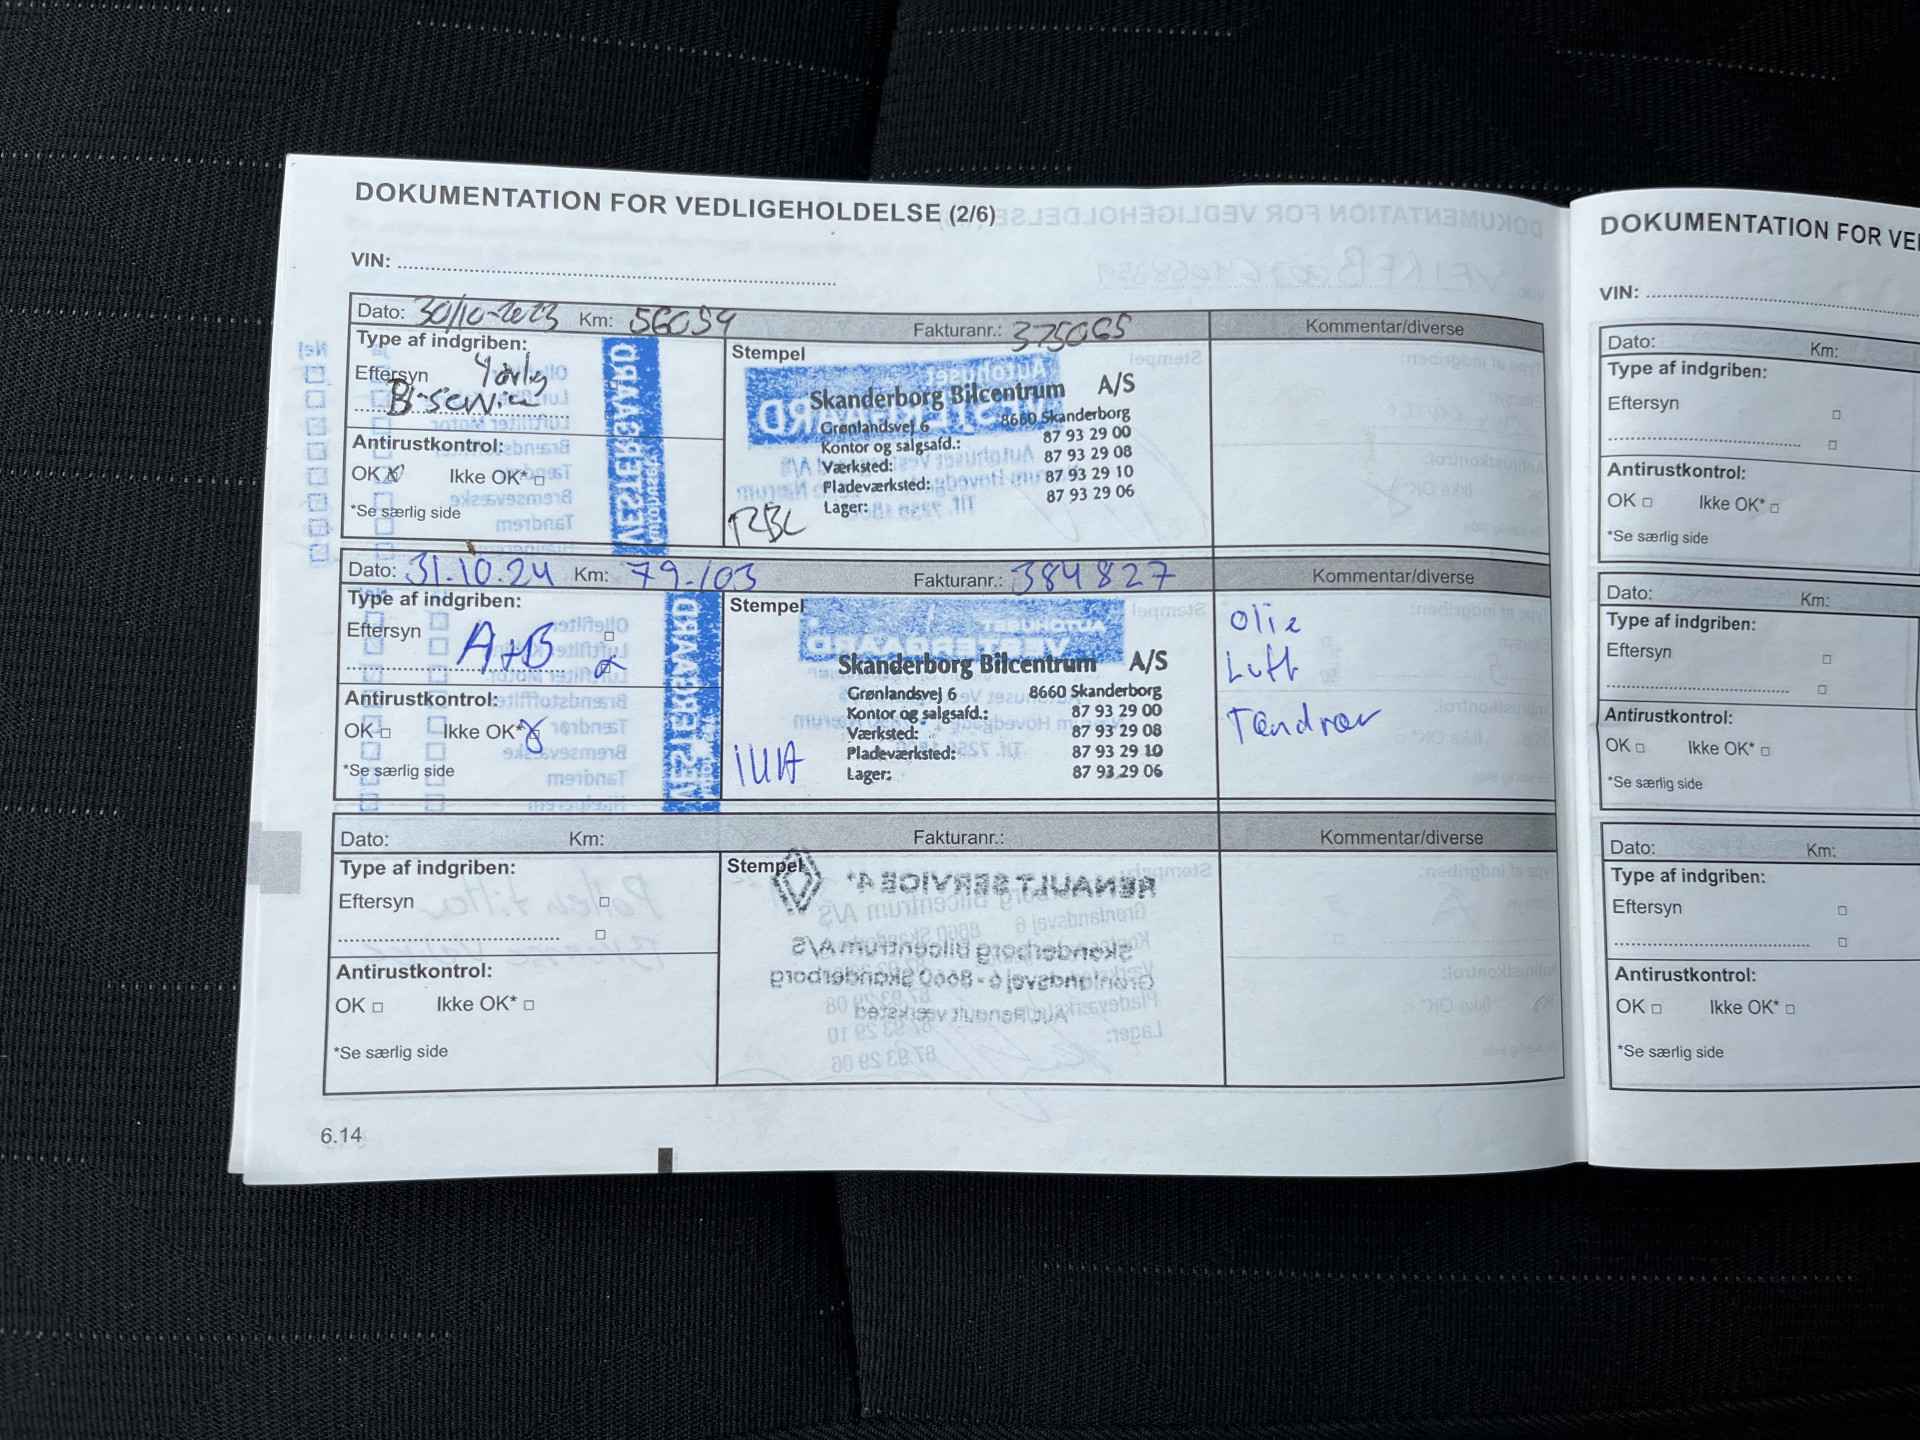 DOKUMENTATION FOR VEDLIGEHOLDELSE (2/6)
VIN:
Dato: 30/10-2023 Km: 56059 Fakturanr.: 375065 Kommentar/diverse
Type af indgriben:
Eftersyn
B-service
Antirustkontrol:
OK Ikke OK*
*Se særlig side
Stempel
Skanderborg Bilcentrum A/S
Grønlandsvej 6 8660 Skanderborg
Kontor og salgsafd.: 87 93 29 00
Værksted: 87 93 29 08
Pladeværksted: 87 93 29 10
Lager: 87 93 29 06
Dato: 31.10.24 Km: 79.103 Fakturanr.: 384827 Kommentar/diverse
Type af indgriben:
Eftersyn A+B
Antirustkontrol:
OK Ikke OK*
*Se særlig side
Stempel
Skanderborg Bilcentrum A/S
Grønlandsvej 6 8660 Skanderborg
Kontor og salgsafd.: 87 93 29 00
Værksted: 87 93 29 08
Pladeværksted: 87 93 29 10
Lager: 87 93 29 06
Olie
Luft
Tændrør
Dato: Km: Fakturanr.: Kommentar/diverse
Type af indgriben:
Eftersyn
Antirustkontrol:
OK Ikke OK*
*Se særlig side
Stempel
6.14
DOKUMENTATION FOR VE
VIN:
Dato: Km:
Type af indgriben:
Eftersyn
Antirustkontrol:
OK Ikke OK*
*Se særlig side
Dato: Km:
Type af indgriben:
Eftersyn
Antirustkontrol:
OK Ikke OK*
*Se særlig side
Dato: Km:
Type af indgriben:
Eftersyn
Antirustkontrol:
OK Ikke OK*
*Se særlig side